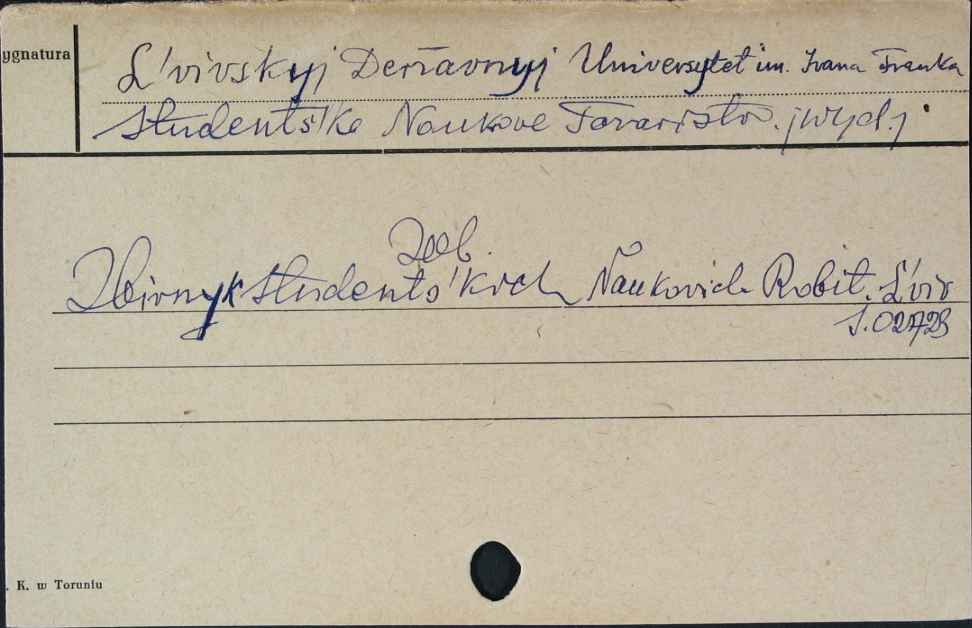 ygnatura
L'vivskyj Deržavnyj Universytet im. Ivana Franka
Students'ke Naukove Tovaristo. [wyd.]
Zob.
Zbirnyk students'kich Naukovich Robit. L'viv
S.02729
. K. w Toruniu